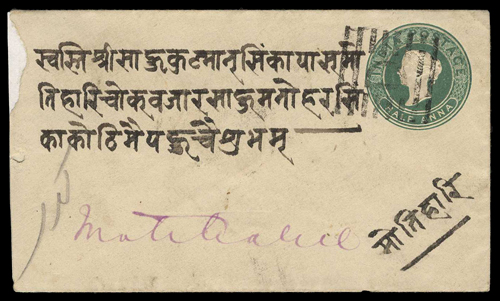 INDIA POSTAGE
HALF ANNA
स्वस्ति श्री साजुकुटमान सिंका पास मो
तिहारि चोक वजार साजु मनोहर सा
का कोठि मै पहुचै शुभम्
मोतिहारि